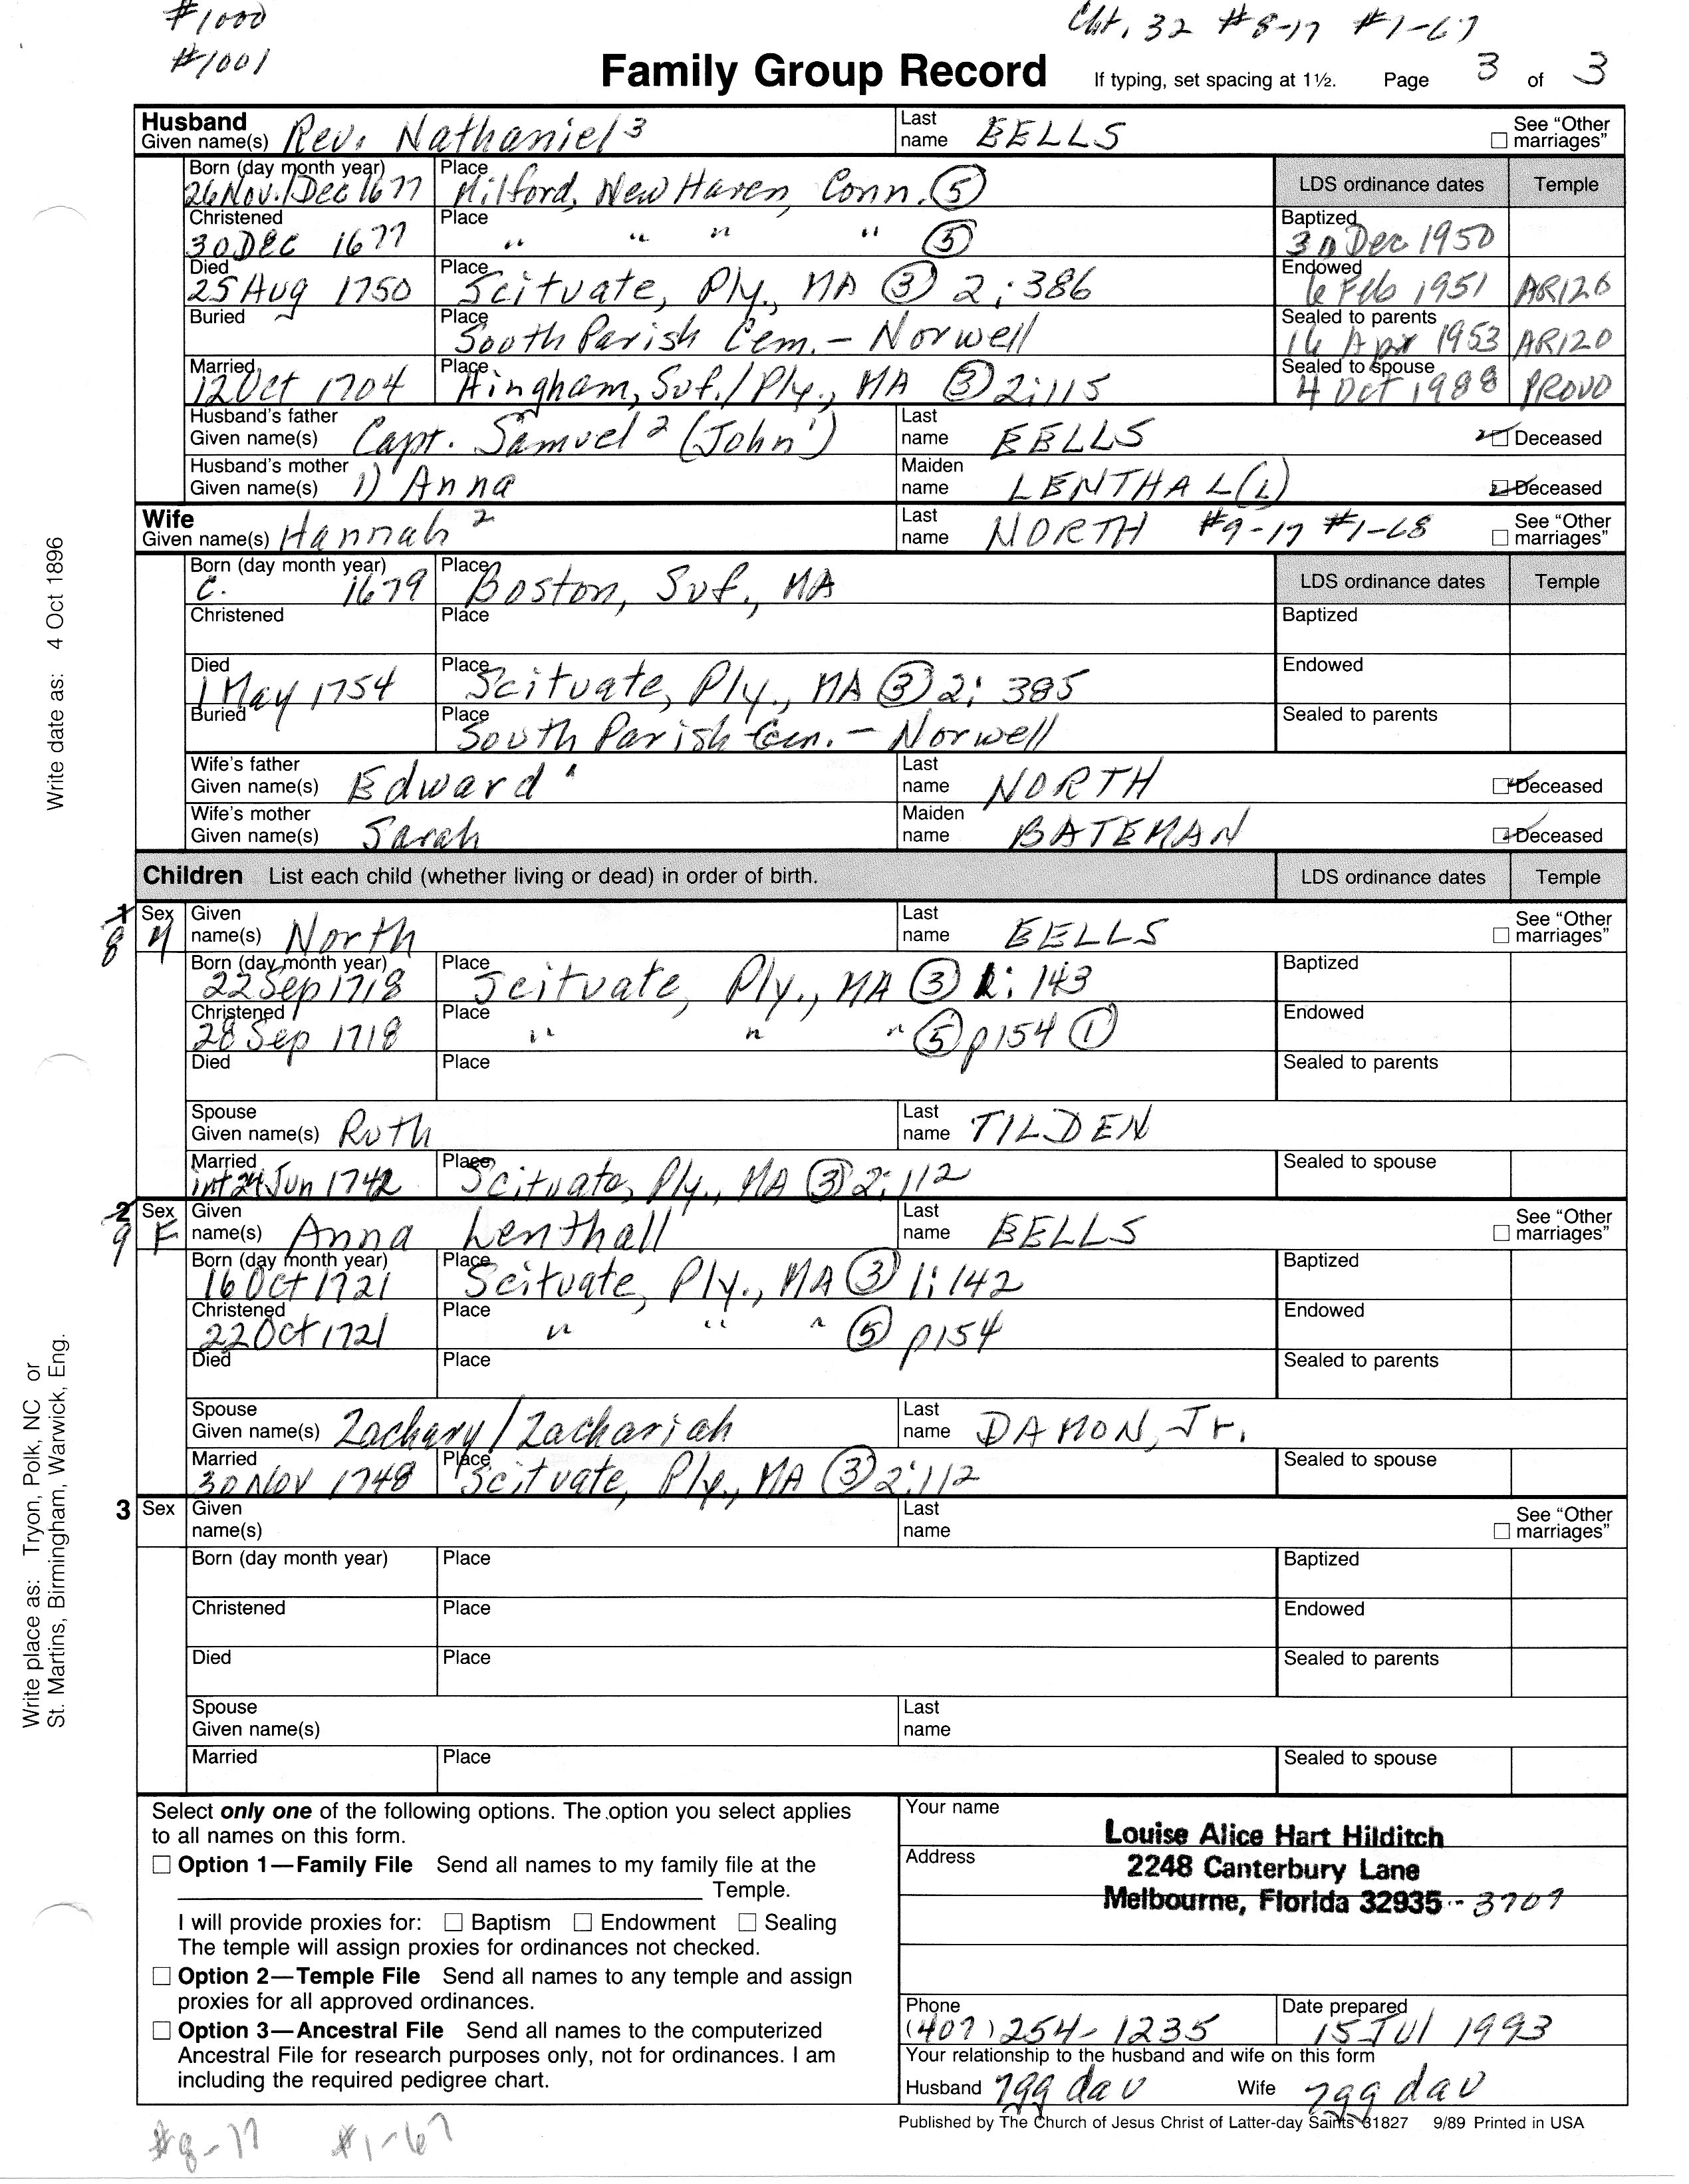 #1000 Cht. 32 #8-17 #1-67
#1001
Family Group Record If typing, set spacing at 1½. Page 3 of 3
Husband Given name(s) Rev. Nathaniel 3 Last name EELLS See "Other marriages"
Born (day month year) 26 Nov./Dec 1677 Place Milford, New Haven, Conn. (5) LDS ordinance dates Temple
Christened 30 DEC 1677 Place " " " " (5) Baptized 30 Dec 1950
Died 25 Aug 1750 Place Scituate, Ply., MA (3) 2:386 Endowed 6 Feb 1951 AR120
Buried Place South Parish Cem. - Norwell Sealed to parents 16 Apr 1953 AR120
Married 12 Oct 1704 Place Hingham, Suf./Ply., MA (3) 2:115 Sealed to spouse 4 Oct 1988 PROVO
Husband's father Given name(s) Capt. Samuel 2 (John 1) Last name EELLS Deceased
Husband's mother Given name(s) 1) Anna Maiden name LENTHAL(L) Deceased
Wife Given name(s) Hannah 2 Last name NORTH #9-17 #1-68 See "Other marriages"
Born (day month year) C. 1679 Place Boston, Suf., MA LDS ordinance dates Temple
Christened Place Baptized
Died 1 May 1754 Place Scituate, Ply., MA (3) 2: 385 Endowed
Buried Place South Parish Cem. - Norwell Sealed to parents
Wife's father Given name(s) Edward 1 Last name NORTH Deceased
Wife's mother Given name(s) Sarah Maiden name BATEMAN Deceased
Children List each child (whether living or dead) in order of birth. LDS ordinance dates Temple
1 8 Sex M Given name(s) North Last name EELLS See "Other marriages"
Born (day month year) 22 Sep 1718 Place Scituate, Ply., MA (3) 1: 143 Baptized
Christened 28 Sep 1718 Place " " " (5) p154 (1) Endowed
Died Place Sealed to parents
Spouse Given name(s) Ruth Last name TILDEN
Married int 24 Jun 1742 Place Scituate, Ply., MA (3) 2:112 Sealed to spouse
2 9 Sex F Given name(s) Anna Lenthall Last name EELLS See "Other marriages"
Born (day month year) 16 Oct 1721 Place Scituate, Ply., MA (3) 1:142 Baptized
Christened 22 Oct 1721 Place " " " (5) p154 Endowed
Died Place Sealed to parents
Spouse Given name(s) Zachary/Zachariah Last name DAMON, Jr.
Married 30 Nov 1748 Place Scituate, Ply., MA (3) 2:112 Sealed to spouse
3 Sex Given name(s) Last name See "Other marriages"
Born (day month year) Place Baptized
Christened Place Endowed
Died Place Sealed to parents
Spouse Given name(s) Last name
Married Place Sealed to spouse
Write date as: 4 Oct 1896
Write place as: Tryon, Polk, NC or
St. Martins, Birmingham, Warwick, Eng.
Select only one of the following options. The option you select applies
to all names on this form.
Option 1—Family File Send all names to my family file at the
Temple.
I will provide proxies for: Baptism Endowment Sealing
The temple will assign proxies for ordinances not checked.
Option 2—Temple File Send all names to any temple and assign
proxies for all approved ordinances.
Option 3—Ancestral File Send all names to the computerized
Ancestral File for research purposes only, not for ordinances. I am
including the required pedigree chart.
Your name Louise Alice Hart Hilditch
Address 2248 Canterbury Lane
Melbourne, Florida 32935 - 3707
Phone (407) 254-1235 Date prepared 15 Jul 1993
Your relationship to the husband and wife on this form
Husband 7gg dau Wife 7gg dau
Published by The Church of Jesus Christ of Latter-day Saints 31827 9/89 Printed in USA
#8-17 #1-67